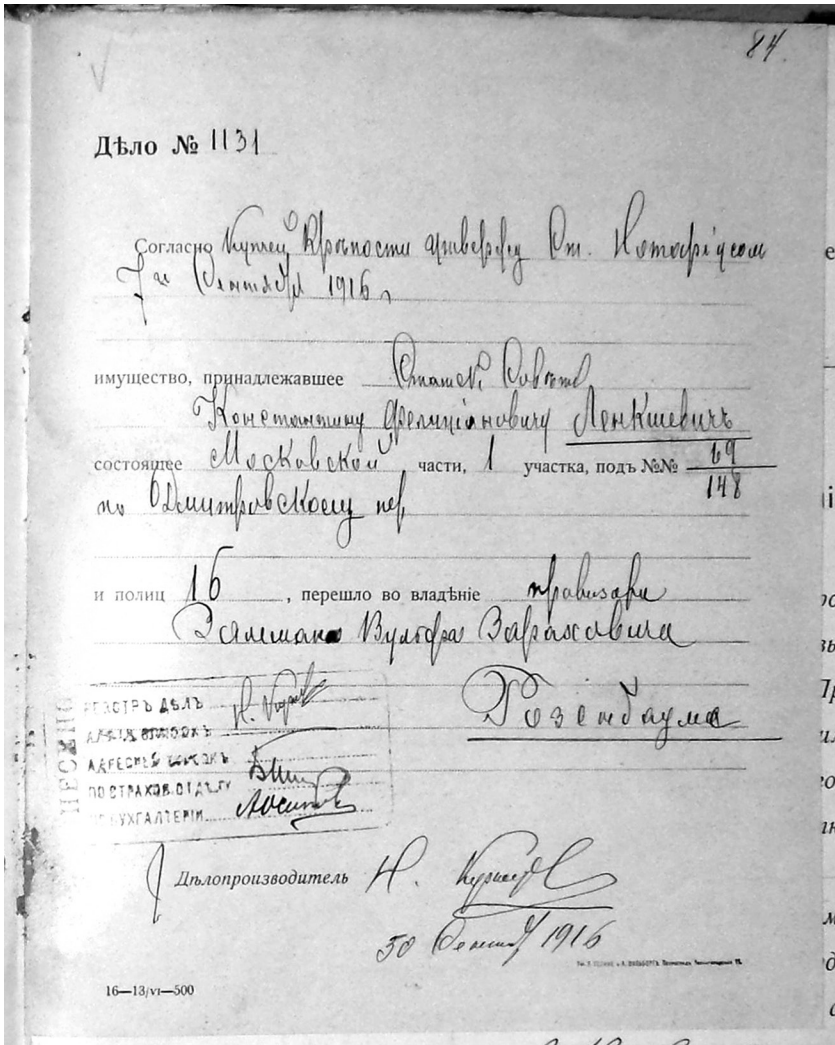 84.
Дѣло № 1131
Согласно Купчей Крѣпости утвержд Ст. Нотаріусом
7 Сентября 1916 г
имущество, принадлежавшее Статск. Совѣтн
Константину Фелиціановичу Ленкшевичъ
состоящее Московской части, 1 участка, подъ №№ 69
148
по Дмитровскому пер
и полиц 16 , перешло во владѣніе провизора
Залмана Вульфа Зараховича
Розенбаума
РЕГИСТРЪ ДѢЛЪ
АДРЕСНЫЙ СПИСОКЪ
ПО СТРАХОВ. ОТДѢЛУ
БУХГАЛТЕРІИ
Дѣлопроизводитель Н.
30 Сентяб 1916
16—13/VI—500